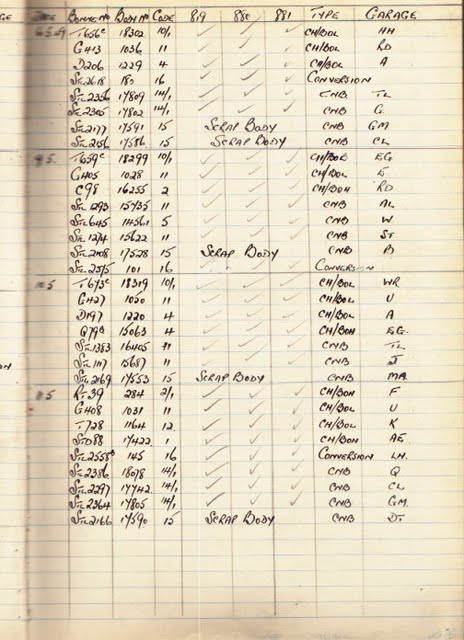 GE DATE BONNET No BODY No CODE 819 880 881 TYPE GARAGE
T656c 18302 10/1 ✓ ✓ ✓ CH/BOL AH
G413 1036 11 ✓ ✓ ✓ CH/BOL RD
D206 1229 4 ✓ ✓ ✓ CH/BOL A
STL2618 180 16 ✓ ✓ ✓ CONVERSION
STL2356 17809 14/1 ✓ ✓ ✓ CNB TL
17802 14/1 ✓ ✓ ✓ CNB G
STL2177 17591 15 SCRAP BODY CNB GM
STL2156 17586 15 SCRAP BODY CNB CL
T659c 18299 10/1 ✓ ✓ ✓ CH/BOL EG
G405 1028 11 ✓ ✓ ✓ CH/BOL E
C98 16255 2 ✓ ✓ ✓ CH/BOH RD
STL1293 15735 11 ✓ ✓ ✓ CNB AL
STL645 14561 5 ✓ ✓ ✓ CNB W
STL1274 15622 11 ✓ ✓ ✓ CNB ST
17528 15 SCRAP BODY CNB
STL2575 101 16 ✓ ✓ CONVERSION
T673c 18319 10/1 ✓ ✓ ✓ CH/BOL WR
G427 1050 11 ✓ ✓ ✓ CH/BOL U
D197 1220 4 ✓ ✓ ✓ CH/BOL A
Q79B 15063 4 ✓ ✓ ✓ CH/BOH EG
STL1383 16405 11 ✓ ✓ ✓ CNB TL
STL1117 15687 11 ✓ ✓ ✓ CNB J
STL2169 17553 15 SCRAP BODY CNB MA
RT39 284 2/1 ✓ ✓ ✓ CH/BOH F
G408 1031 11 ✓ ✓ ✓ CH/BOL U
T728 1164 12 ✓ ✓ ✓ CH/BOL K
STD88 17422 1 ✓ ✓ ✓ CH/BOH AE
STL2558 145 16 ✓ ✓ ✓ CONVERSION LH
STL2386 18078 14/1 ✓ ✓ ✓ CNB Q
STL2297 17742 14/1 ✓ ✓ ✓ CNB CL
STL2364 17805 14/1 ✓ ✓ ✓ CNB GM
STL2166 17590 15 SCRAP BODY CNB